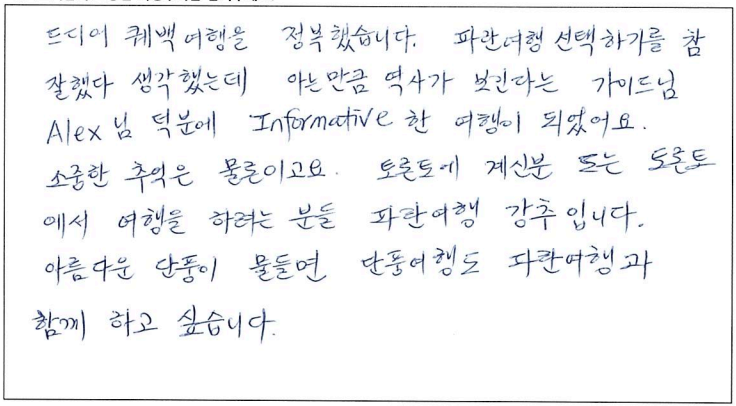 드디어 퀘백여행을 정복했습니다. 파란여행 선택하기를 참
잘했다 생각했는데 아는만큼 역사가 보인다는 가이드님
Alex님 덕분에 Informative한 여행이 되었어요.
소중한 추억은 물론이고요. 토론토에 계신분 또는 토론토
에서 여행을 하려는 분들 파란여행 강추입니다.
아름다운 단풍이 물들면 단풍여행도 파란여행과
함께 하고 싶습니다.